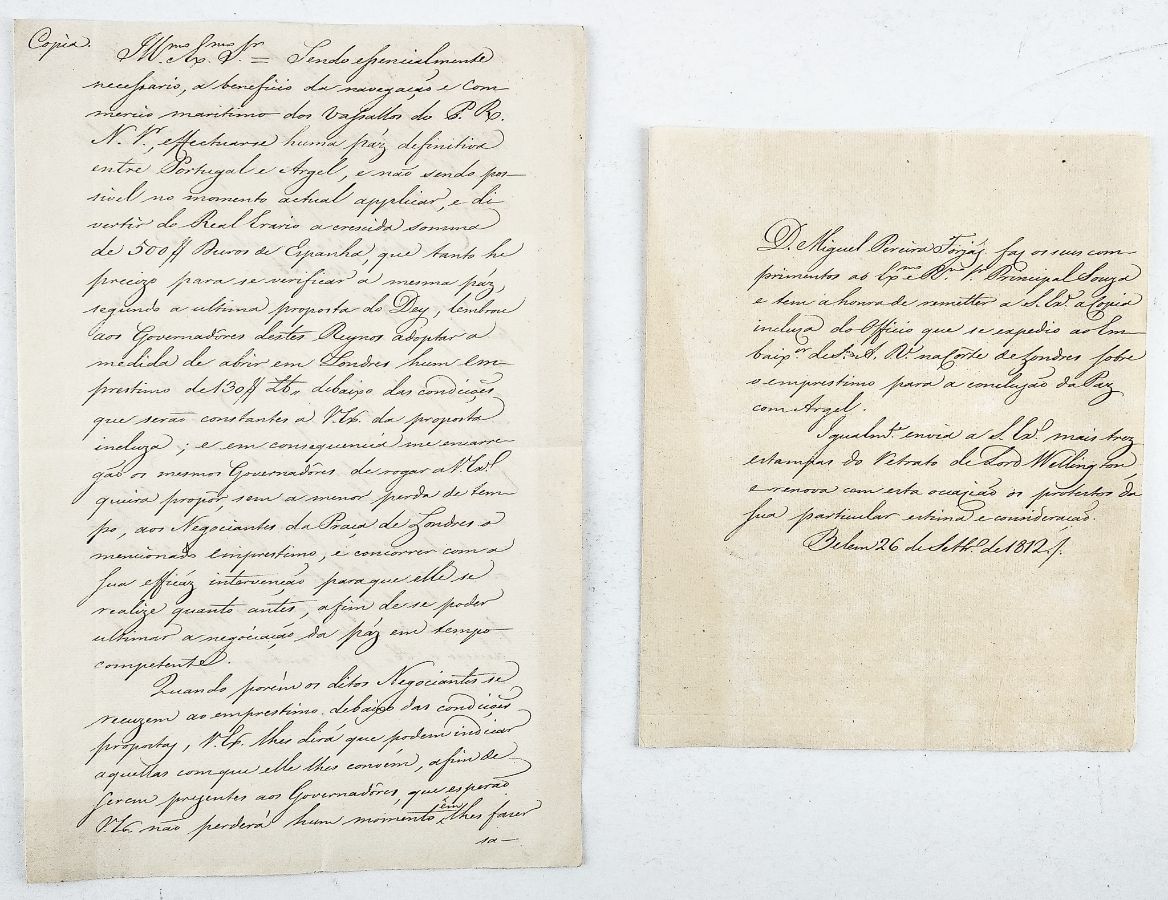 Copia.
Ill.mo Ex.mo Sr. = Sendo essencialmente
necessario, a beneficio da navegação e com-
mercio maritimo dos Vassallos do P. R.
N. Sr., effectuarse huma páz definitiva
entre Portugal e Argel, e não sendo pos-
sivel no momento actual applicar, e di
vertir do Real Erario a crescida somma
de 500ff Duros de Espanha, que tanto he
precizo para se verificar a mesma páz,
segundo a ultima proposta do Dey, lembrou
aos Governadôres destes Reynos adoptar a
medida de abrir em Londres hum em-
prestimo de 130ff Lb., debaixo das condições
que serão constantes a V. Ex. da proposta
incluza; e em consequencia me encarre-
gão os mesmos Governadôres de rogar a V. Ex.a
queira propôr, sem a menor perda de tem-
po, aos Negociantes da Praça de Londres o
mencionado emprestimo, e concorrer com a
sua efficáz intervenção para que elle se
realize quanto antes, afim de se poder
ultimar a negociação da páz em tempo
competente.
Quando porém os ditos Negociantes se
recuzem ao emprestimo debaixo das condições
propostas, V. Ex. lhes dirá que podem indicar
aquellas com que elle lhes convém, afim de
serem prezentes aos Governadôres, que esperão
V. Ex. não perderá hum momento em lhes fazer
sa-
D. Miguel Pereira Forjáz faz os seus com-
primentos ao Ex.mo e R.mo Sr. Principal Souza
e tem a honra de remetter a S. Ex.a a Copia
incluza do Officio que se expedio ao Em-
baix.or de S. A. R. na Côrte de Londres sobre
o emprestimo para a conclusão da Paz
com Argel.
Igualm.te envia a S. Ex.a mais trez
estampas do Retrato de Lord Wellington,
e renova com esta occazião os protestos da
sua particular estima e consideração.
Belem 26 de Setbr.o de 1812 /.